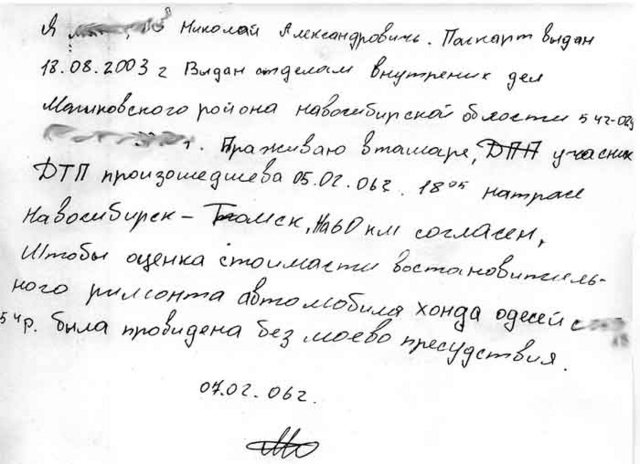 Я Николай Александровичь. Паспарт выдан
18.08.2003 г Выдан отделам внутрених дел
района новосибирской области 54
Праживаю втамаре, ДПП учасник
ДТП произошедшева 05.02.06г. 18 05 натрасе
Новосибирск – Томск, На60 км согласен,
Штобы оценка стоимасти востановитель-
ного римонта автомобиля хонда одесей
54р. была провидена без моево пресудствия.
07.02.06г.